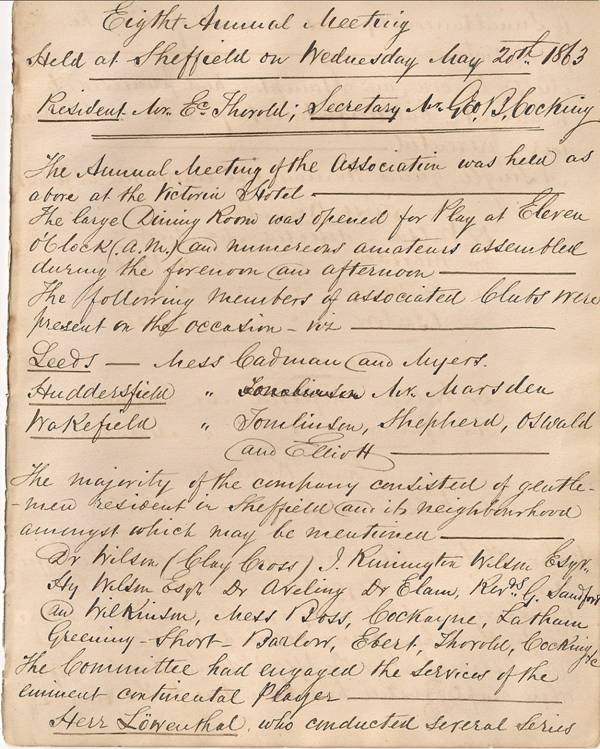 Eight Annual Meeting
Held at Sheffield on Wednesday May 20th 1863
President Mr. Ec. Thorold; Secretary Mr Geo, B, Cocking
The Annual Meeting of the Association was held as
above at the Victoria Hotel —
The large Dining Room was opened for Play at Eleven
O'Clock (A.M.) and numerous amateurs assembled
during the forenoon and afternoon —
The following members of associated Clubs were
present on the occasion – viz —
Leeds — Mess Cadman and Myers.
Huddersfield " Tomlinson Mr. Marsden
Wakefield " Tomlinson, Shepherd, Oswald
and Elliott —
The majority of the company consisted of gentle-
-men resident in Sheffield and its neighbourhood
amongst which may be mentioned —
Dr Wilson (Clay Cross) J. Rimington Wilson Esqr.
Hy Wilson Esqr Dr Aveling Dr Elam, Revds G. Sandford
and Wilkinson, Mess Boss, Cockayne, Latham
Greening – Short – Barlow, Ebert, Thorold, Cocking &c
The Committee had engaged the services of the
eminent continental Player —
Herr Löwenthal, who conducted several series